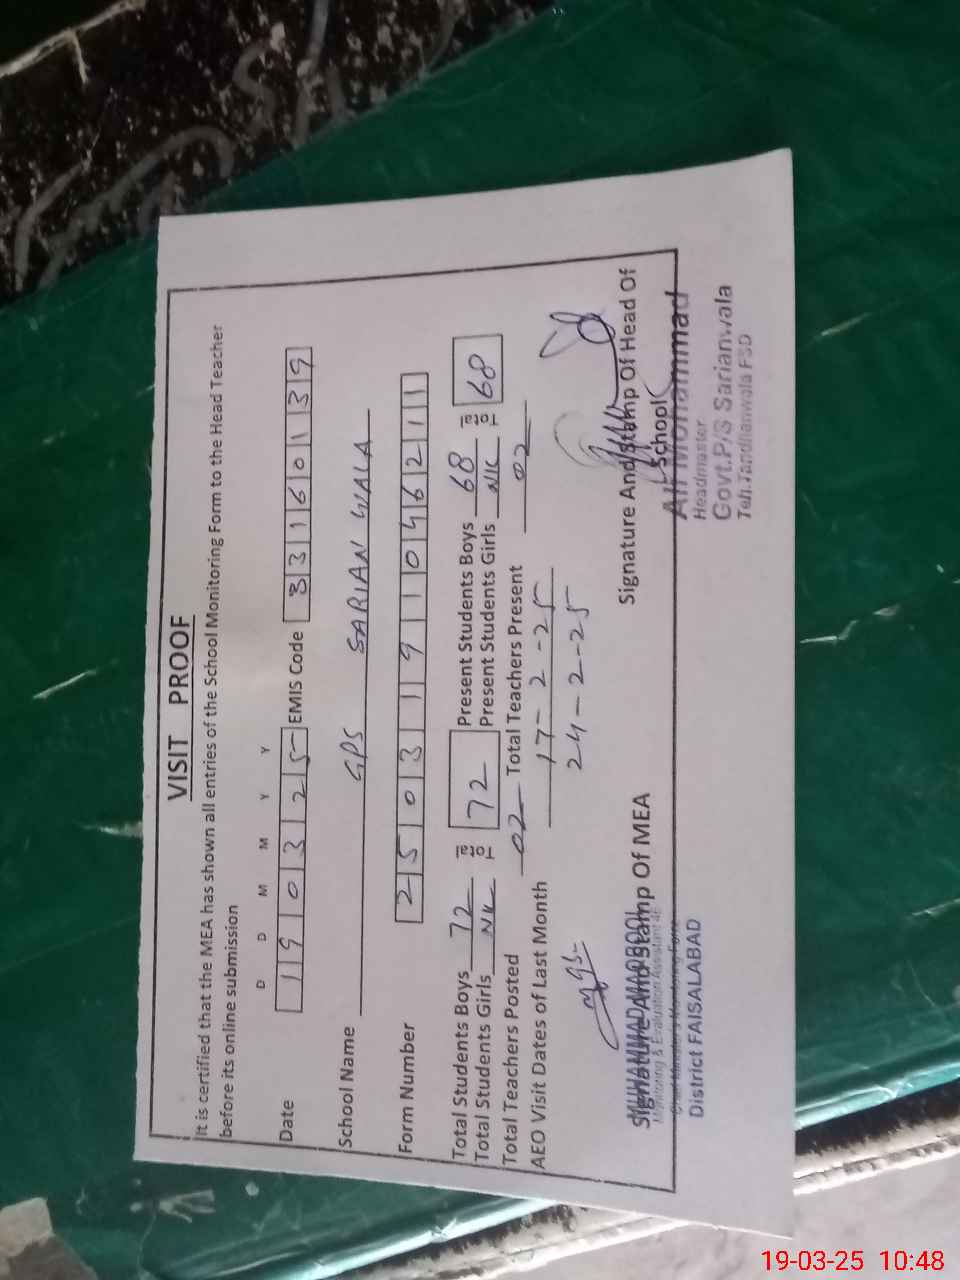 VISIT PROOF
It is certified that the MEA has shown all entries of the School Monitoring Form to the Head Teacher
before its online submission
D D M M Y Y
Date 190325 EMIS Code 33160139
School Name GPS SARIAN WALA
Form Number 25031911046211
Total Students Boys 72 Total 72 Present Students Boys 68 Total 68
Total Students Girls NIL Present Students Girls NIL
Total Teachers Posted 02 Total Teachers Present 02
AEO Visit Dates of Last Month 17-2-25
24-2-25
Signature And Stamp Of MEA
MUHAMMAD MAQBOOL
Monitoring & Evaluation Assistant
Chief Minister's Monitoring Force
District FAISALABAD
Signature And Stamp Of Head Of
School
Ali Mohammad
Headmaster
Govt.P/S Sarianwala
Teh.Tandlianwala FSD
19-03-25 10:48